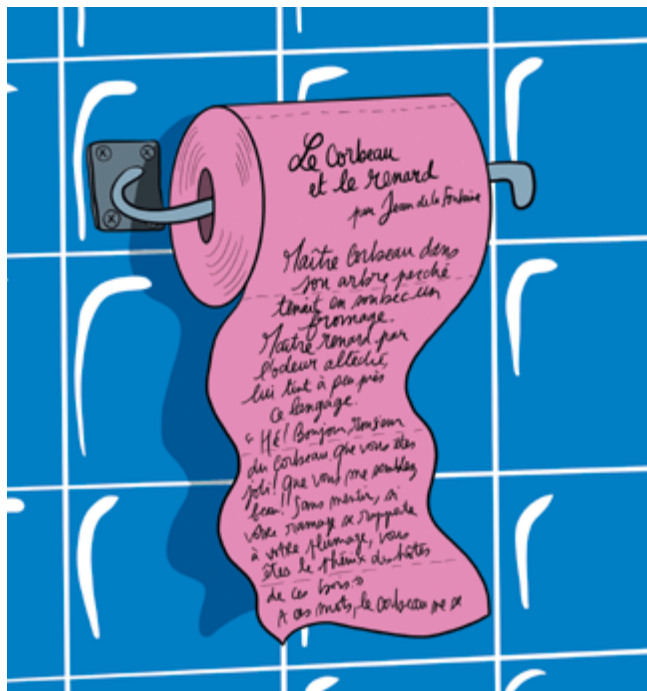 Le Corbeau
et le renard
par Jean de la Fontaine
Maître Corbeau dans
son arbre perché
tenait en son bec un
fromage.
Maître renard par
l'odeur alléché,
lui tint à peu près
ce langage.
" Hé! Bonjour, Monsieur
du corbeau, que vous êtes
joli! que vous me semblez
beau! Sans mentir, si
votre ramage se rapporte
à votre plumage, vous
êtes le phénix des hôtes
de ces bois »
A ces mots, le corbeau ne se